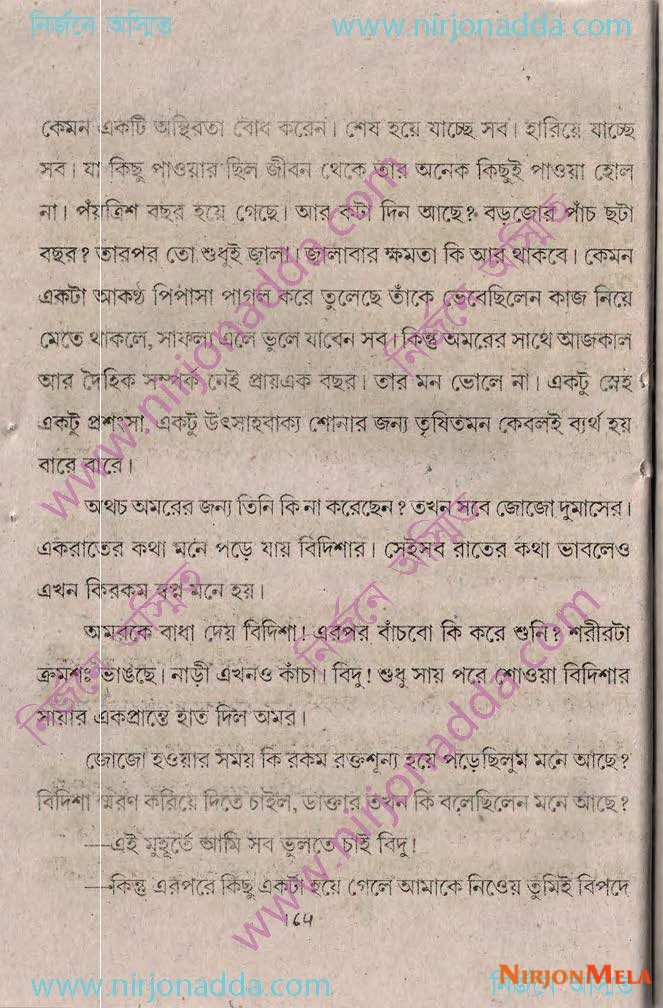 নির্জনে অস্মিত www.nirjonadda.com
কেমন একটি অস্থিরতা বোধ করেন। শেষ হয়ে যাচ্ছে সব। হারিয়ে যাচ্ছে
সব। যা কিছু পাওয়ার ছিল জীবন থেকে তার অনেক কিছুই পাওয়া হোল
না। পঁয়ত্রিশ বছর হয়ে গেছে। আর কটা দিন আছে? বড়জোর পাঁচ ছটা
বছর? তারপর তো শুধুই জ্বালা। জ্বালাবার ক্ষমতা কি আর থাকবে। কেমন
একটা আকণ্ঠ পিপাসা পাগল করে তুলেছে তাঁকে ভেবেছিলেন কাজ নিয়ে
মেতে থাকলে, সাফল্য এলে ভুলে যাবেন সব। কিন্তু অমরের সাথে আজকাল
আর দৈহিক সম্পর্ক নেই প্রায়এক বছর। তার মন ভোলে না। একটু স্নেহ
একটু প্রশংসা একটু উৎসাহবাক্য শোনার জন্য তৃষিতমন কেবলই ব্যর্থ হয়
বারে বারে।
অথচ অমরের জন্য তিনি কি না করেছেন? তখন সবে জোজো দুমাসের।
একরাতের কথা মনে পড়ে যায় বিদিশার। সেইসব রাতের কথা ভাবলেও
এখন কিরকম স্বপ্ন মনে হয়।
অমরকে বাধা দেয় বিদিশা! এরপর বাঁচবো কি করে শুনি? শরীরটা
ক্রমশঃ ভাঙছে। নাড়ী এখনও কাঁচা। বিদু! শুধু সায় পরে শোওয়া বিদিশার
সায়ার একপ্রান্তে হাত দিল অমর।
জোজো হওয়ার সময় কি রকম রক্তশূন্য হয়ে পড়েছিলুম মনে আছে?
বিদিশা স্মরণ করিয়ে দিতে চাইল, ডাক্তার তখন কি বলেছিলেন মনে আছে?
—এই মুহূর্তে আমি সব ভুলতে চাই বিদু!
—কিন্তু এরপরে কিছু একটা হয়ে গেলে আমাকে নিওেয় তুমিই বিপদে
164
www.nirjonadda.com
নির্জনে অস্মিত
নির্জনে অস্মিত
নির্জনে অস্মিত
www.nirjonadda.com
www.nirjonadda.com নির্জনে অস্মিত
NIRJONMELA